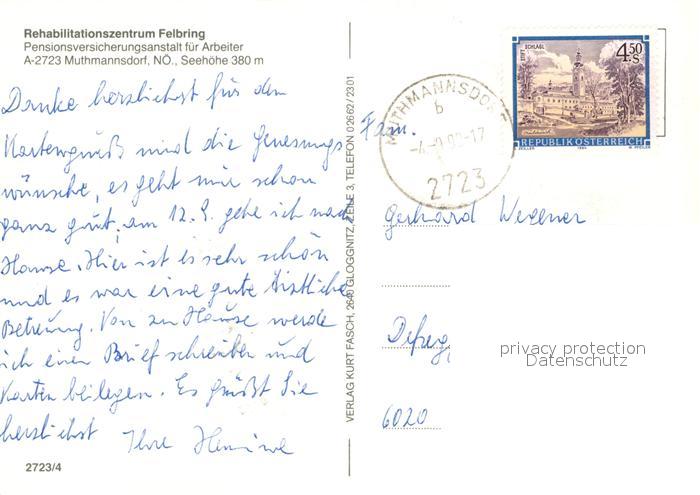 Rehabilitationszentrum Felbring
Pensionsversicherungsanstalt für Arbeiter
A-2723 Muthmannsdorf, NÖ., Seehöhe 380 m
Danke herzlichst für den
Kartengruß und die Genesungs-
wünsche, es geht mir schon
ganz gut, am 12. 9. gehe ich nach
Hause. Hier ist es sehr schön
und es war eine gute ärztliche
Betreuung. Von zu Hause werde
ich einen Brief schreiben und
Karten beilegen. Es grüßt Sie
herzlichst Ihre
2723/4
VERLAG KURT FASCH, 2640 GLOGGNITZ, ZEILE 3, TELEFON 0 26 62 / 23 01
MUTHMANNSDORF
b
2723
STIFT SCHLÄGL
4.50 S
REPUBLIK ÖSTERREICH
ZEILLER 1984 W. PFEILER
Fam.
Gerhard Wegener
Defreg
6020
privacy protection
Datenschutz